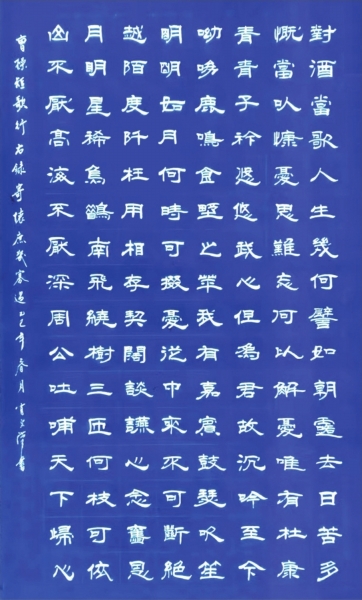 對酒當歌人生幾何譬如朝露去日苦多
慨當以慷憂思難忘何以解憂唯有杜康
青青子衿悠悠我心但為君故沉吟至今
呦呦鹿鳴食野之苹我有嘉賓鼓瑟吹笙
明明如月何時可掇憂從中來不可斷絕
越陌度阡枉用相存契闊談讌心念舊恩
月明星稀烏鵲南飛繞樹三匝何枝可依
山不厭高海不厭深周公吐哺天下歸心
曹操短歌行右錄寄懷庶幾寡過乙巳年春月書